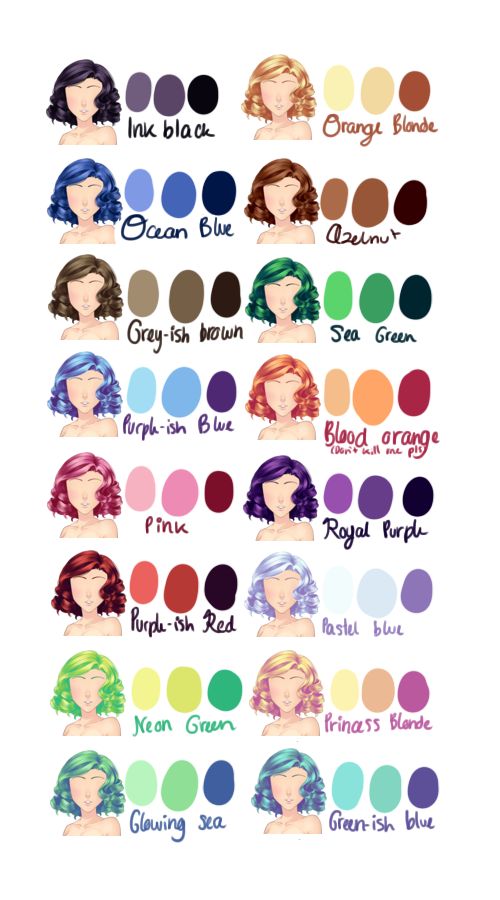 Ink black
Orange Blonde
Ocean Blue
Azelnut
Grey-ish brown
Sea Green
Purple-ish Blue
Blood orange
(Don't kill me pls)
Pink
Royal Purple
Purple-ish Red
Pastel blue
Neon Green
Princess Blonde
Glowing sea
Green-ish blue